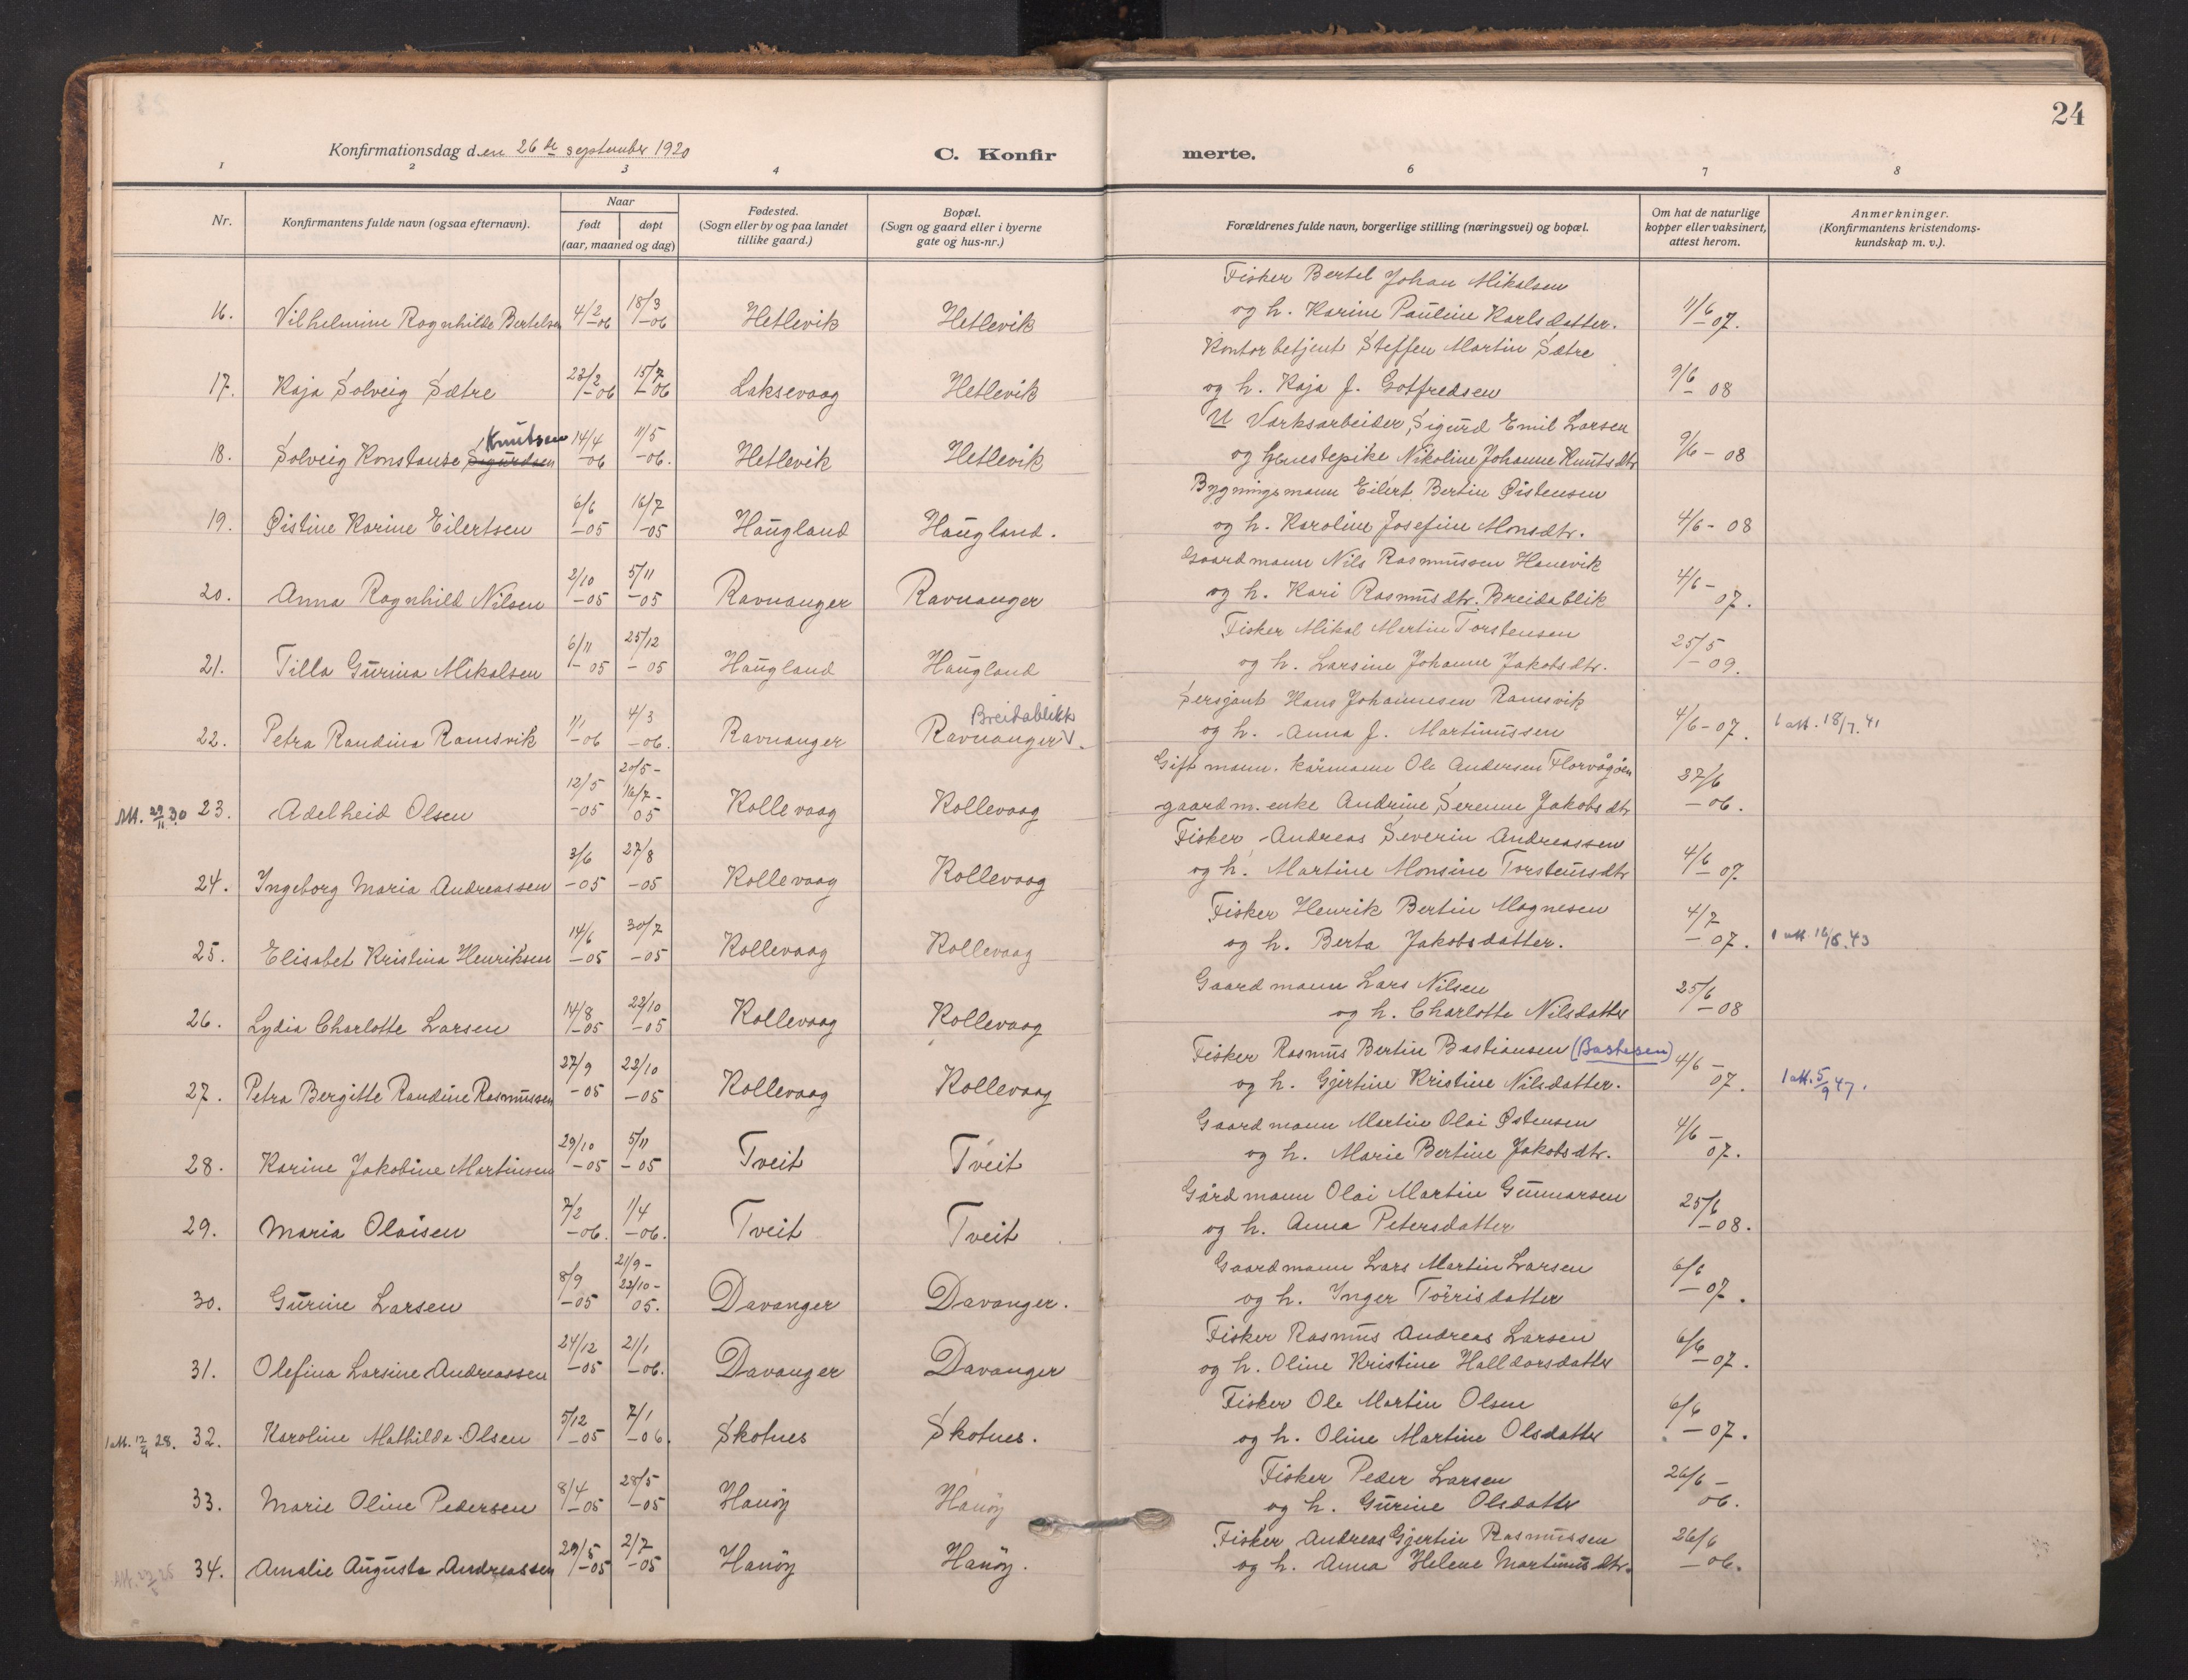 24
Konfirmationsdag den 26de september 1920
C. Konfir merte.
1 2 3 4 6 7 8
Nr.
Konfirmantens fulde navn (ogsaa efternavn).
Naar
født døpt
(aar, maaned og dag)
Fødested.
(Sogn eller by og paa landet
tillike gaard.)
Bopæl.
(Sogn og gaard eller i byerne
gate og hus-nr.)
Forældrenes fulde navn, borgerlige stilling (næringsvei) og bopæl.
Om hat de naturlige
kopper eller vaksinert,
attest herom.
Anmerkninger.
(Konfirmantens kristendoms-
kundskap m. v.).
Fisker Bertel Johan Mikalsen
16. Vilhelmine Ragnhilde Bertelsen 4/2-06 18/3-06 Hetlevik Hetlevik og h. Karine Pauline Karlsdatter. 11/6 07.
Kontorbetjent Steffen Martin Sætre
17. Kaja Solveig Sætre 23/2-06 15/7-06 Laksevaag Hetlevik og h. Kaja J. Gotfredsen 9/6-08
U Værksarbeider, Sigurd Emil Larsen
Knutsen
18. Solveig Konstanse Sigurdsen 14/4-06 11/5-06. Hetlevik Hetlevik og tjenestepike Nikoline Johanne Knutsdtr 9/6-08
Bygningsmann Eilert Bertin Øistensen
19. Øistine Karine Eilertsen 6/6-05 16/7-05 Haugland Haugland. og h. Karoline Josefine Monsdtr. 4/6-08
Gaardmann Nils Rasmussen Hanevik
20. Anna Ragnhild Nilsen 2/10-05 5/11-05 Ravnanger Ravnanger og h. Kari Rasmusdtr. Breidablik 4/6-07.
Fisker Mikal Martin Torstensen
21. Tilla Gurina Mikalsen 6/11-05 25/12-05 Haugland Haugland og h. Larsine Johanne Jakobsdtr. 25/5-09.
Sersjant Hans Johannesen Ramsvik
Breidablikk
22. Petra Randina Ramsvik 1/1-06 4/3-06. Ravnanger Ravnanger V. og h. Anna J. Martinussen 4/6-07. 1 att. 18/7.41
Gift mann. kårmann Ole Andersen Florvågøen
Att. 29/11 30 23. Adelheid Olsen 12/5-05 20/5- 16/7-05 Kollevaag Kollevaag gaardm. enke Andrine Serenne Jakobsdtr 27/6-06.
Fisker Andreas Severin Andreassen
24. Ingeborg Maria Andreassen 3/6-05 27/8-05 Kollevaag Kollevaag og h. Martine Monsine Torsteinsdtr 4/6-07.
Fisker Henrik Bertin Magnesen
25. Elisabet Kristina Henriksen 14/6-05 30/7-05 Kollevaag Kollevaag og h. Berta Jakobsdatter. 4/7-07. 1 att. 16/8.43
Gaardmann Lars Nilsen
26. Lydia Charlotte Larsen 14/8-05 22/10-05 Kollevaag Kollevaag og h. Charlotte Nilsdatter 25/6-08
Fisker Rasmus Bertin Bastiansen (Bastesen)
27. Petra Bergitte Randine Rasmussen 27/9-05 22/10-05 Kollevaag Kollevaag og h. Gjertine Kristine Nilsdatter. 4/6-07. 1 att. 5/9 47.
Gaardmann Martin Olai Østensen
28. Karine Jakobine Martinsen 29/10-05 5/11-05 Tveit Tveit og h. Marie Bertine Jakobsdtr. 4/6-07.
Gårdmann Olai Martin Gunnarsen
29. Maria Olaisen 7/2-06. 1/4-06. Tveit Tveit og h. Anna Petersdatter 25/6-08.
Gaardmann Lars Martin Larsen
30. Gurine Larsen 8/9-05 21/9- 22/10-05. Davanger Davanger. og h. Inger Törrisdatter 6/6-07.
Fisker Rasmus Andreas Larsen
31. Olefina Larsine Andreassen 24/12-05 21/1-06. Davanger Davanger og h. Oline Kristine Halldorsdatter 6/6-07.
Fisker Ole Martin Olsen
1 att. 12/4 28. 32. Karoline Mathilde Olsen 5/12-05 7/1-06. Skotnes Skotnes. og h. Oline Martine Olsdatter 6/6-07.
Fisker Peder Larsen
33. Marie Oline Pedersen 8/4-05 28/5-05 Hanöy Hanöy og h. Gurine Olsdatter 26/6-06.
Fisker Andreas Gjertin Rasmussen
34. Amalie Augusta Andreassen 29/5-05 2/7-05 Hanöy Hanöy. og h. Anna Helene Martinusdtr. 26/6-06.